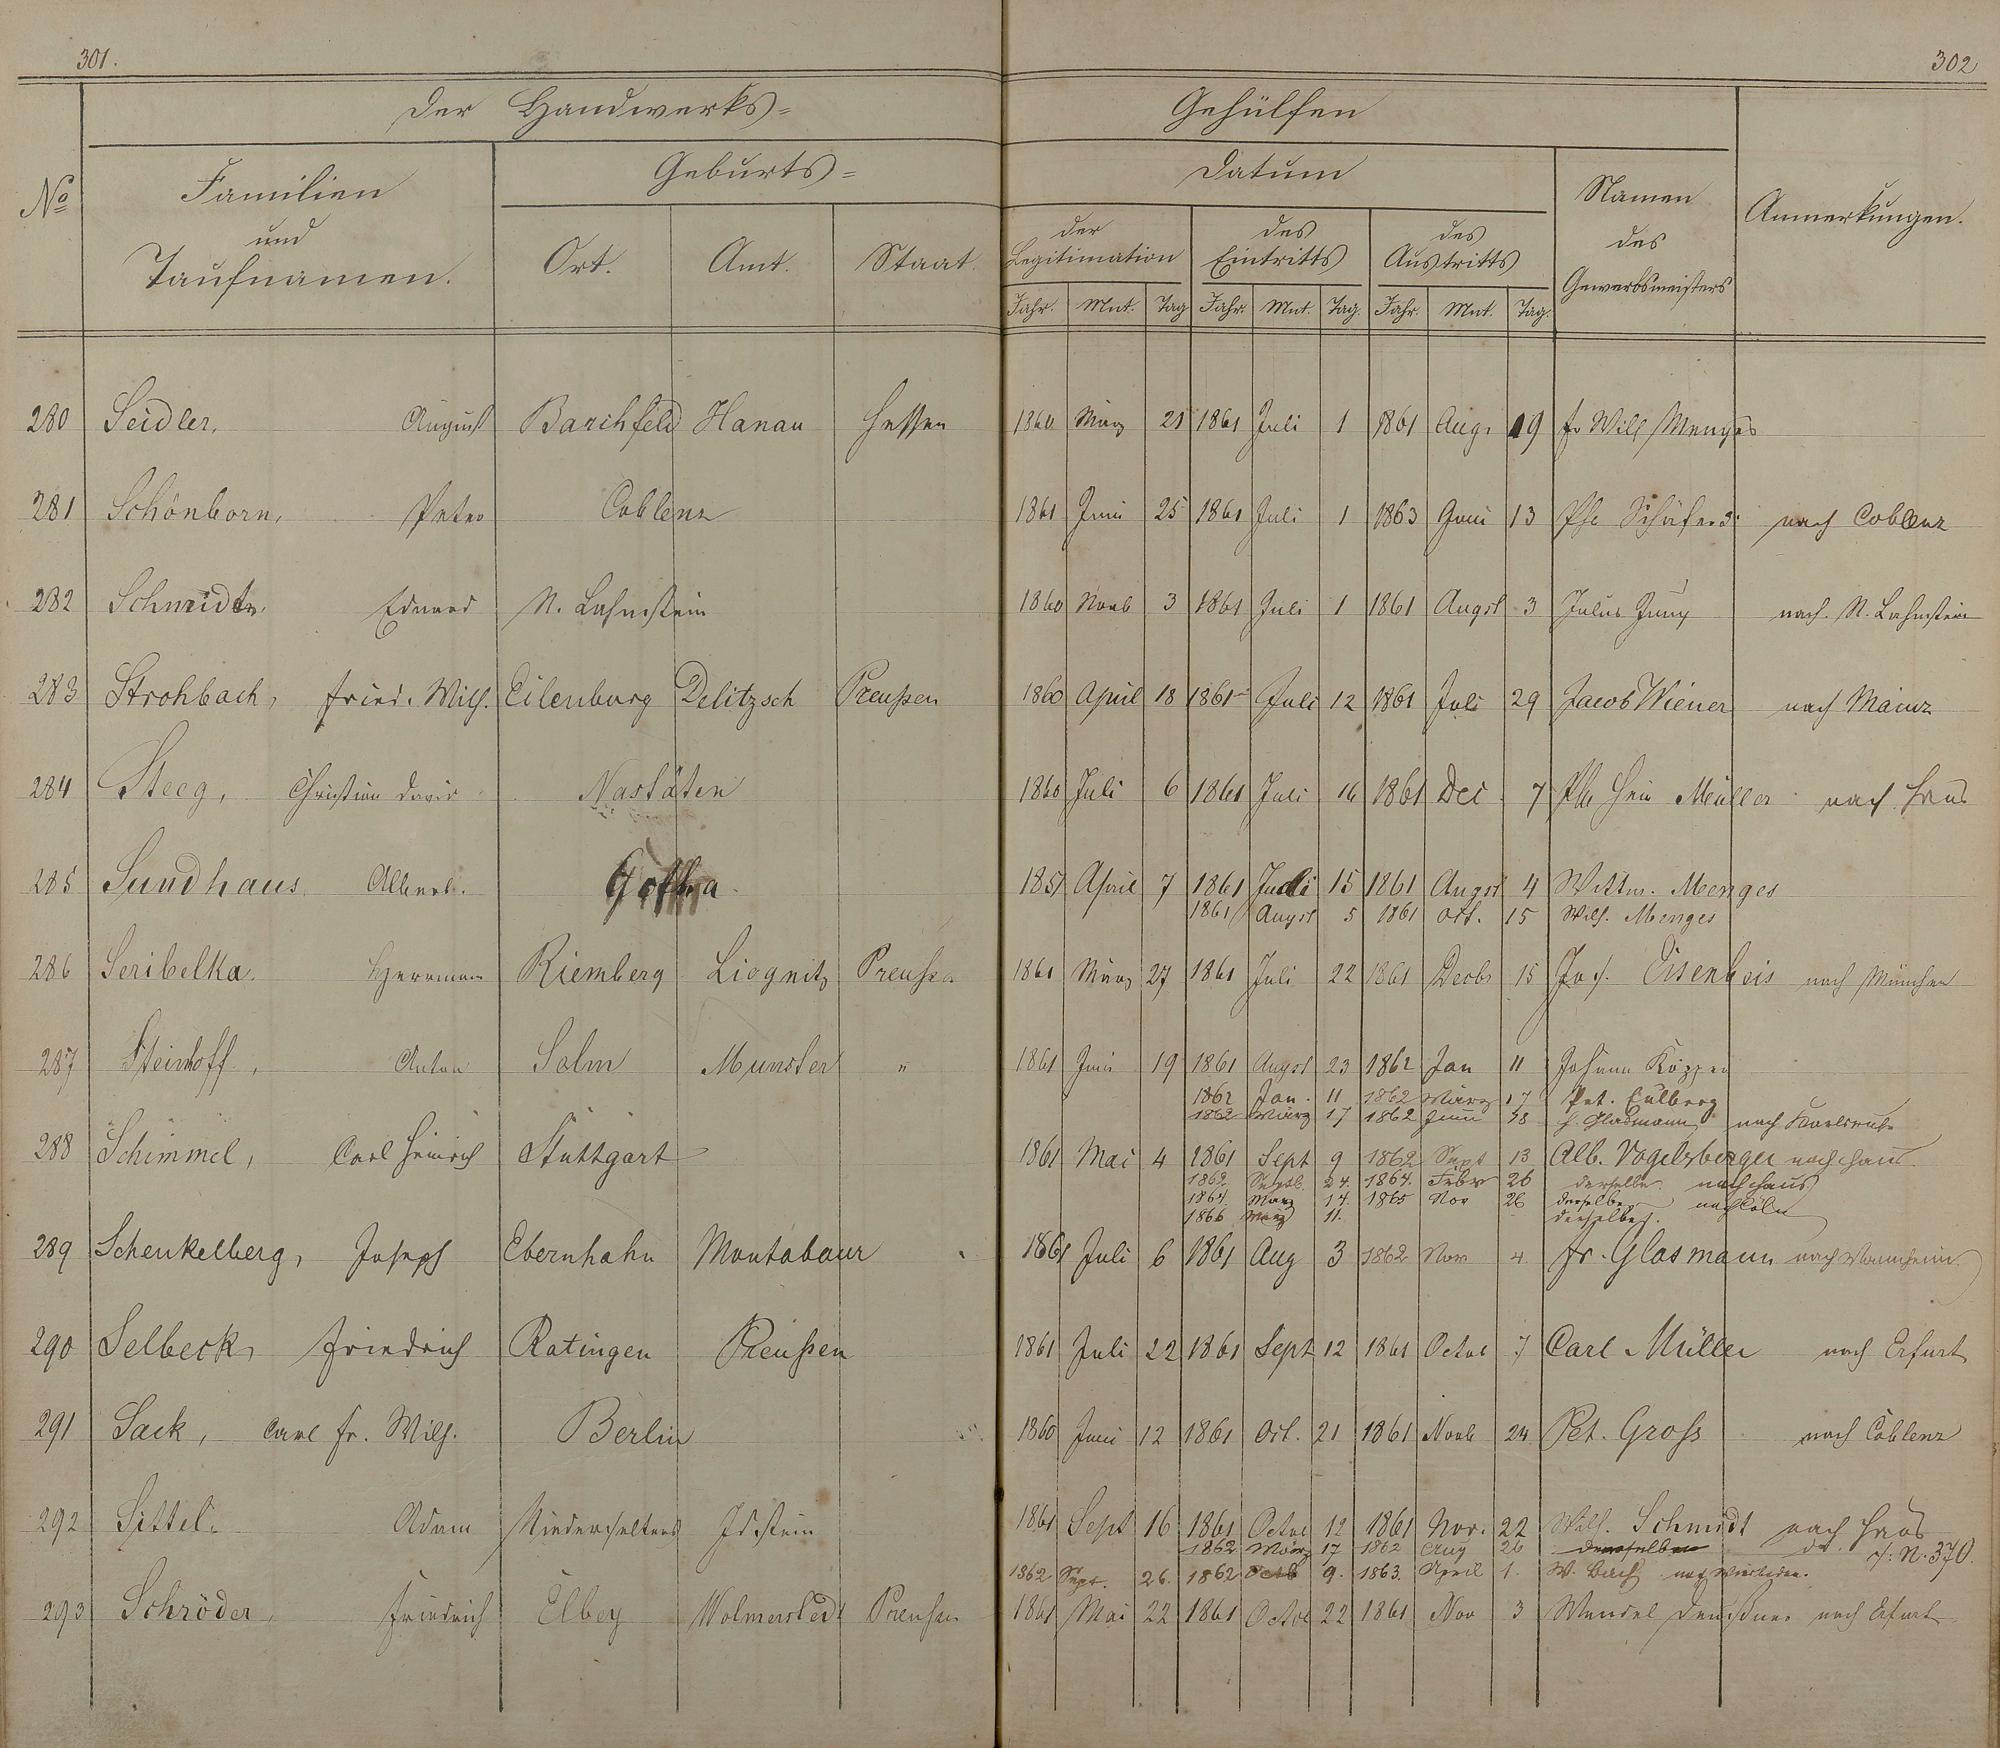 301.
302
Der Handwerks=
Gehülfen
No
Familien
und
Taufnamen.
Geburts=
Ort.
Amt.
Staat.
Datum
der
Legitimation
des
Eintritts
des
Austritts
Jahr. Mnt. Tag Jahr. Mnt. Tag. Jahr. Mnt. Tag.
Namen
des
Gewerbsmeisters
Anmerkungen.
280 Seidler, August Barchfeld Hanau Hessen 1860 März 21 1861 Juli 1 1861 Aug. 19 Menges
281 Schönborn, Peter Coblenz 1861 Juni 25 1861 Juli 1 1863 Juni 13 Phl Schäfer nach Coblenz
282 Schmidt, Eduard N. Lahnstein 1860 Novb 3 1861 Juli 1 1861 Augst 3 Julius Jung nach N. Lahnstein
283 Strohbach, Fried. Wilh. Eilenburg Delitzsch Preußen 1860 April 18 1861 Juli 12 1861 Juli 29 Jacob Wiener nach Mainz
284 Steeg, Christian David Nastäten 1860 Juli 6 1861 Juli 16 1861 Dec 7 Müller nach Haus
285 Sundhaus Albert. Gotha 1851 April 7 1861 Juli 15 1861 Augst 4 Menges
1861 Augst 5 1861 Oct. 15 Wilh. Menges
286 Seribelka. Herrmann Riemberg Liegnitz Preußen 1861 März 27 1861 Juli 22 1861 Decbr 15 Jos. Eisenbeis nach München
287 Steinhoff, Anton Münster " 1861 Juni 19 1861 Augst 23 1862 Jan 11 Johann
1862 Jan. 11 1862 März 17 Pet. Eulberg
1862 März 17 1862 Juni 18 Glasmann nach Karlsruhe
288 Schimmel, Carl Heinrich Stuttgart 1861 Mai 4 1861 Sept 9 1862 Sept 13 Alb. Vogelsberger nach Haus.
1862 Septb. 24. 1864. Febr 26 derselbe. nach Haus
1864. März 14. 1865 Nov 26 derselbe nach Cöln
1866 März 11. derselbe.
289 Schenkelberg, Joseph Ebernhahn Montabaur 1861 Juli 6 1861 Aug 3 1862 Nov 4 Fr. Glasmann nach Mannheim
290 Selbeck, Friedrich Ratingen Preußen 1861 Juli 22 1861 Sept 12 1861 Octbr 7 Carl Müller nach Erfurt
291 Sack, Carl Fr. Wilh. Berlin 1860 Juni 12 1861 Oct. 21 1861 Novb 24 Pet. Gross nach Coblenz
292 Sittel. Adam Niederselters Idstein 1861 Sept 16 1861 Octbr 12 1861 Nov. 22 Wilh. Schmidt nach Haus
1862 März 17 1862 Aug 26 derselbe do. N. 370.
1862 Sept. 26. 1862 Octb 9. 1863. April 1. W. Bach nach
293 Schröder, Friedrich Elbey Wolmerstedt Preußen 1861 Mai 22 1861 Octbr 22 1861 Nov 3 Wendel nach Erfurt